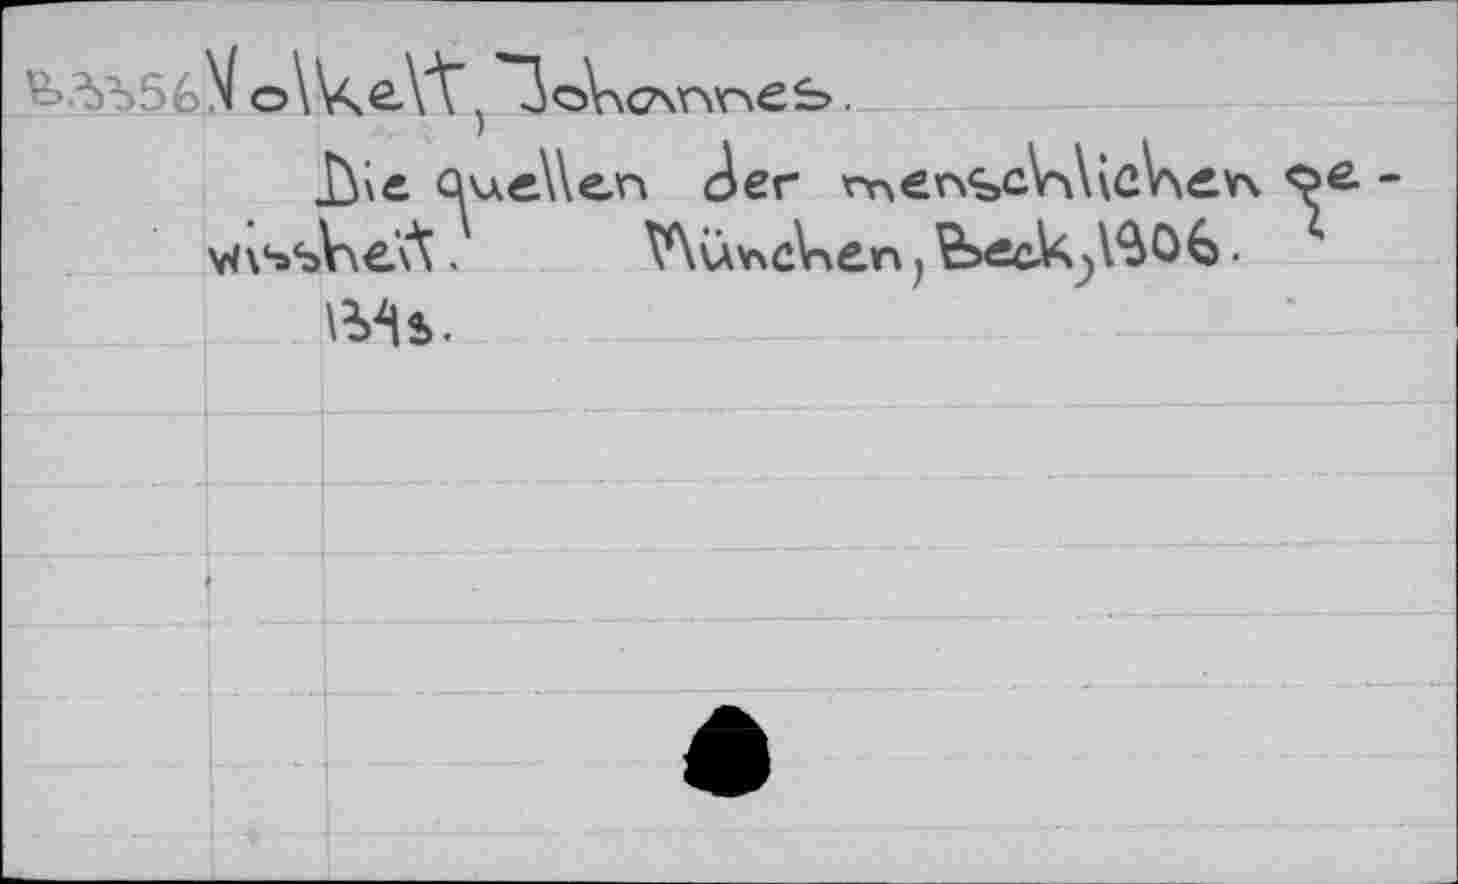 B.3356. Volkelt, Johannes.
Die quellen der menschlichen ge-
wissheit. München, Beck, 1906.
134s.